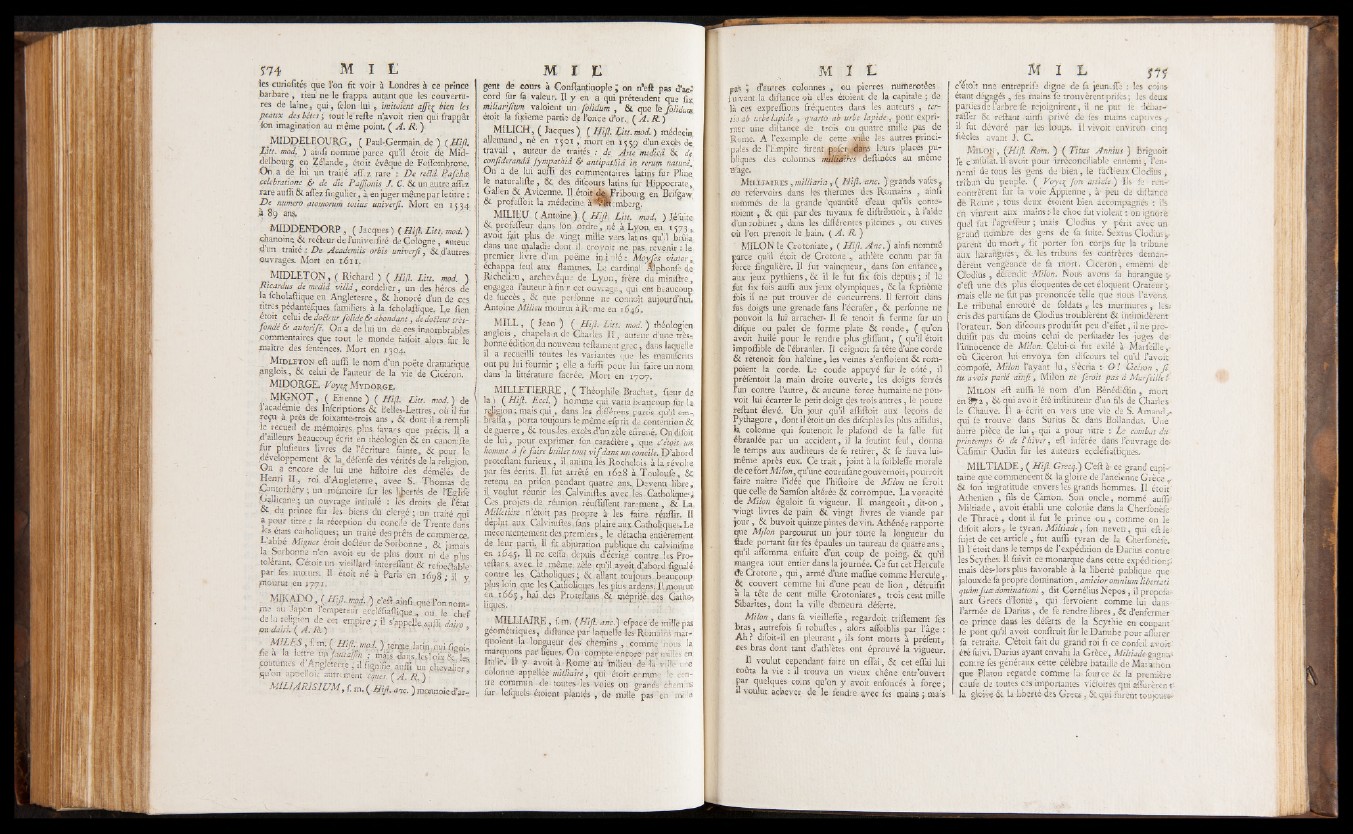 574 M I L
les curioſités que l'on fit voir à Londres à ce prince
barbare, rien ne le frappa autant que les couvertu-
res de laine, qui, ſelon lui, imitoient aſſez bien les
peaux des bêtes; tout le reſte n'avoit rien qui frappât
ſon imagination au même point. (A. R.)
MIDDELBOURG, (Paul-Germain de) (Hiſt.
Litt. mod.) ainſi nommé parce qu'il étoit de Mid-
delbourg en Zélande, étoit évêque de Foſſombrone.
On a de lui un traité aſſez rare : De rectâ Paſchæ
celebratione & de die Paſſionis J. C. & un autre aſſez
rare auſſi & aſſez ſingulier, à en juger même par le titre :
De numero atomorum totius univerſi. Mort en 1534
à 89 ans.
MIDDENDORP, (Jacques) (Hiſt. Litt. mod.)
chanoine & recteur de l'univerſité de Cologne, auteur
d'un traité : De Academiis orbis univerſi, & d'autres
ouvrages. Mort en 1611.
MIDLETON, (Richard) (Hiſt. Litt. mod.)
Ricardus de mediâ villâ, cordelier, un des héros de
la ſcholaſtique en Angleterre, & honoré d'un de ces
titres pédanteſques familiers à la ſcholaſtique. Le ſien
étoit celui de docteur ſolide & abondant, de docteur très-
fondé & autoriſé. On a de lui un de ces innombrables
commentaires que tout le monde faiſoit alors ſur le
maître des ſentences. Mort en 1304.
MIDLETON eſt auſſi le nom d'un poëte dramatique
anglois, & celui de l'auteur de la vie de Cicéron.
MIDORGE. Voyez MYDORGE.
MIGNOT, (Etienne) (Hiſt. Litt. mod.) de
l'académie des Inſcriptions & Belles-Lettres, où il fut
reçu à près de ſoixante-trois ans, & dont il a rempli
le recueil de mémoires plus ſavans que précis. Il a
d'ailleurs beaucoup écrit en théologien & en canoniſte
ſur pluſieurs livres de l'écriture ſainte, & pour le
développement & la défenſe des vérités de la religion.
On a encore de lui une hiſtoire des démêlés de
Henri II, roi d'Angleterre, avec S. Thomas de
Cantorbéry; un mémoire ſur les libertés de l'Egliſe
Gallicane; un ouvrage intitulé : les droits de l'état
& du prince ſur les biens du clergé; un traité qui
a pour titre : la réception du concile de Trente dans
les états catholiques; un traité des prêts de commerce.
L'abbé Mignot étoit docteur de Sorbonne, & jamais
la Sorbonne n'en avoit eu de plus doux ni de plus
tolérant. C'étoit un vieillard intéreſſant & reſpectable
par ſes mœurs. Il étoit né à Paris en 1698; il y
mourut en 1771.
MIKADO, (Hiſt. mod.) c'eſt ainſi que l'on nom-
me au Japon l'empereur eccléſiaſtique, ou le chef
de la religion de cet empire; il s'appelle auſſi dairo,
ou dairi. (A. R.)
MILES, ſ. m. (Hiſt. mod.) terme latin qui ſigni-
fie à la lettre un fantaſſin; mais dans les loix & les
coutumes d'Angleterre, il ſignifie auſſi un chevalier,
qu'on appelloit autrement eques. (A. R.)
MILIARISIUM, ſ. m. (Hiſt. anc.) monnoie d'ar-
M I L
gent de cours à Conſtantinople; on n'eſt pas d'ac-
cord ſur ſa valeur. Il y en a qui prétendent que ſix
miliariſium valoient un ſolidum, & que le ſolidum
étoit la ſixieme partie de l'once d'or. (A. R.)
MILICH, (Jacques) (Hiſt. Litt. mod.) médecin
allemand, né en 1501, mort en 1559 d'un excès de
travail, auteur de traités : de Arte medicâ & de
conſiderandâ ſympathiâ & antipathiâ in rerum naturâ.
On a de lui auſſi des commentaires latins ſur Pline
le naturaliſte, & des diſcours latins ſur Hippocrate,
Galien & Avicenne. Il étoit de Fribourg en Briſgaw
& profeſſoit la médecine à Wittemberg.
MILIEU (Antoine) (Hiſt. Litt. mod.) Jéſuite
& profeſſeur dans ſon ordre, né à Lyon en 1573,
avoit fait plus de vingt mille vers latins qu'il brûla
dans une maladie dont il croyoit ne pas revenir : le
premier livre d'un poëme intitulé : Moyſes viator,
échappa ſeul aux flammes. Le cardinal Alphonſe de
Richelieu, archevêque de Lyon, frère du miniſtre,
engagea l'auteur à finir cet ouvrage, qui eut beaucoup
de ſuccès, & que perſonne ne connoît aujourd'hui.
Antoine Milieu mourut à Rome en 1646.
MILL, (Jean) (Hiſt. Litt. mod.) théologien
anglois, chapelain de Charles II, auteur d'une très-
bonne édition du nouveau teſtament grec, dans laquelle
il a recueilli toutes les variantes que les manuſcrits
ont pu lui fournir; elle a ſuffi pour lui faire un nom
dans la littérature ſacrée. Mort en 1707.
MILLETIERRE, (Théophile Brachet, ſieur de
la) (Hiſt. Eccl.) homme qui varia beaucoup ſur la
religion; mais qui, dans les différens partis qu'il em-
braſſa, porta toujours le même eſprit de contention &
de guerre, & tous les excès d'un zèle effréné. On diſoit
de lui, pour exprimer ſon caractère, que c'étoit un
homme à ſe faire brûler tout vif dans un concile. D'abord
proteſtant furieux, il anima les Rochelois à la révolte
par ſes écrits. Il fut arrêté en 1628 à Toulouſe, &
retenu en priſon pendant quatre ans. Devenu libre,
il voulut réunir les Calviniſtes avec les Catholiques.
Ces projets de réunion réuſſiſſent rarement, & La
Milletière n'étoit pas propre à les faire réuſſir. Il
déplut aux Calviniſtes ſans plaire aux Catholiques. Le
mécontentement des premiers, le détacha entièrement
de leur parti, il fit abjuration publique du calviniſme
en 1645. Il ne ceſſa depuis d'écrire contre les Pro-
teſtans avec le même zèle qu'il avoit d'abord ſignalé
contre les Catholiques; & allant toujours beaucoup
plus loin que les Catholiques les plus ardens. Il mourut
en 1665, haï des Proteſtans & mépriſé des Catho-
liques.
MILLIAIRE, ſ. m. (Hiſt. anc.) eſpace de mille pas
géométriques, diſtance par laquelle les Romains mar-
quoient la longueur des chemins, comme nous la
marquons par lieues. On compte encore par milles en
Italie. Il y avoit à Rome au milieu de la ville une
colonne appellée milliaire, qui étoit comme le cen-
tre commun de toutes les voies ou grands chemins
ſur leſquels étoient plantés, de mille pas en mille
M I L
pas; d'autres colonnes, ou pierres numérotées
ſuivant la diſtance où elles étoient de la capitale; de
là ces expreſſions fréquentes dans les auteurs, ter-
tio ab urbe lapide, quarto ab urbe lapide, pour expri-
mer une diſtance de trois ou quatre mille pas de
Rome. A l'exemple de cette ville les autres princi-
pales de l'Empire firent placer dans leurs places pu-
bliques des colonnes milliaires deſtinées au même
uſage.
MILLIAIRES, milliaria, (Hiſt. anc.) grands vaſes,
ou réſervoirs dans les thermes des Romains, ainſi
nommés de la grande quantité d'eau qu'ils conte-
noient, & qui par des tuyaux ſe diſtribuoit, à l'aide
d'un robinet, dans les différentes piſcines, ou cuves
où l'on prenoit le bain. (A. R.)
MILON le Crotoniate, (Hiſt. Anc.) ainſi nommé
parce qu'il étoit de Crotone, athlète connu par ſa
force ſingulière. Il fut vainqueur, dans ſon enfance,
aux jeux pythiens, & il le fut ſix fois depuis; il le
fut ſix fois auſſi aux jeux olympiques, & la ſeptième
fois il ne put trouver de concurrens. Il ſerroit dans
ſes doigts une grenade ſans l'écraſer, & perſonne ne
pouvoit la lui arracher. Il ſe tenoit ſi ferme ſur un
diſque ou palet de forme plate & ronde, (qu'on
avoit huilé pour le rendre plus gliſſant, (qu'il étoit
impoſſible de l'ébranler. Il ceignoit ſa tête d'une corde
& retenoit ſon haleine, les veines s'enfloient & rom-
poient la corde. Le coude appuyé ſur le côté, il
préſentoit la main droite ouverte, les doigts ſerrés
l'un contre l'autre, & aucune force humaine ne pou-
voit lui écarter le petit doigt des trois autres, le pouce
reſtant élevé. Un jour qu'il aſſiſtoit aux leçons de
Pythagore, dont il étoit un des diſciples les plus aſſidus,
la colonne qui ſoutenoit le plafond de la ſalle fut
ébranlée par un accident, il la ſoutint ſeul, donna
le temps aux auditeurs de ſe retirer, & ſe ſauva lui-
même après eux. Ce trait, joint à la foibleſſe morale
de ce fort Milon, qu'une courtiſane gouvernoit, pourroit
faire naître l'idée que l'hiſtoire de Milon ne ſeroit
que celle de Samſon altérée & corrompue. La voracité
de Milon égaloit ſa vigueur. Il mangeoit, dit-on,
vingt livres de pain & vingt livres de viande par
jour, & buvoit quinze pintes de vin. Athénée rapporte
que Milon parcourut un jour toute la longueur du
ſtade portant ſur ſes épaules un taureau de quatre ans,
qu'il aſſomma enſuite d'un coup de poing, & qu'il
mangea tout entier dans la journée. Ce fut cet Hercule
de Crotone, qui, armé d'une maſſue comme Hercule,
& couvert comme lui d'une peau de lion, détruiſit
à la tête de cent mille Crotoniates, trois cent mille
Sibarites, dont la ville demeura déſerte.
Milon, dans ſa vieilleſſe, regardoit triſtement ſes
bras, autrefois ſi robuſtes, alors affoiblis par l'âge :
Ah ? diſoit-il en pleurant, ils ſont morts à préſent,
ces bras dont tant d'athlètes ont éprouvé la vigueur.
Il voulut cependant faire un eſſai, & cet eſſai lui
coûta la vie : il trouva un vieux chêne entr'ouvert
par quelques coins qu'on y avoit enfoncés à force;
il voulut achever de le fendre avec ſes mains; mais
M I L 575
c'étoit une entrepriſe digne de ſa jeuneſſe : les coins
étant dégagés, ſes mains ſe trouvèrent priſes; les deux
parties de l'arbre ſe rejoignirent, il ne put ſe débar-
raſſer & reſtant ainſi privé de ſes mains captives,
il fut dévoré par les loups. Il vivoit environ cinq
ſiècles avant J. C.
MILON, (Hiſt. Rom.) (Titus Annius) Briguoit
le conſulat. Il avoit pour irréconciliable ennemi, l'en-
nemi de tous les gens de bien, le factieux Clodius,
tribun du peuple. (Voyez ſon article) Ils ſe ren-
contrèrent ſur la voie Appienne, à peu de diſtance
de Rome; tous deux étoient bien accompagnés : ils
en vinrent aux mains : le choc fut violent : on ignore
quel fut l'agreſſeur; mais Clodius y périt avec un
grand nombre des gens de ſa ſuite. Sextus Clodius,
parent du mort, fit porter ſon corps ſur la tribune
aux harangues, & les tribuns ſes confrères deman-
dèrent vengeance de ſa mort. Ciceron, ennemi de
Clodius, défendit Milon. Nous avons ſa harangue;
c'eſt une des plus éloquentes de cet éloquent Orateur;
mais elle ne fut pas prononcée telle que nous l'avons.
Le tribunal entouré de ſoldats, les murmures, les
cris des partiſans de Clodius troublèrent & intimidèrent
l'orateur. Son diſcours produiſit peu d'effet, il ne pro-
duiſit pas du moins celui de perſuader les juges de
l'innocence de Milon. Celui-ci fut exilé à Marſeille,
où Ciceron lui envoya ſon diſcours tel qu'il l'avoit
compoſé. Milon l'ayant lu, s'écria : O ! Ciceron, ſi
tu avois parlé ainſi, Milon ne ſeroit pas à Marſeille !
MILON eſt auſſi le nom d'un Bénédictin, mort
en 872, & qui avoit été inſtituteur d'un fils de Charles
le Chauve. Il a écrit en vers une vie de S. Amand,
qui ſe trouve dans Surius & dans Bollandus. Une
autre pièce de lui, qui a pour titre : Le combat du
printemps & de l'hiver, eſt inſérée dans l'ouvrage de
Caſimir Oudin ſur les auteurs eccleſiaſtiques.
MILTIADE, (Hiſt. Grecq.) C'eſt à ce grand capi-
taine que commencent & la gloire de l'ancienne Grèce,
& ſon ingratitude envers les grands hommes. Il étoit
Athenien, fils de Cimon. Son oncle, nommé auſſi
Miltiade, avoit établi une colonie dans la Cherſonèſe
de Thrace, dont il fut le prince ou, comme on le
diſoit alors, le tyran. Miltiade, ſon neveu, qui eſt le
ſujet de cet article, fut auſſi tyran de la Cherſonèſe.
Il l'étoit dans le temps de l'expédition de Darius contre
les Scythes. Il ſuivit ce monarque dans cette expédition;
mais dès-lors plus favorable à la liberté publique que
jaloux de ſa propre domination, amicior omnium libertati
quàm ſuæ dominationi, dit Cornélius Nepos, il propoſa
aux Grecs d'Ionie, qui ſervoient comme lui dans
l'armée de Darius, de ſe rendre libres, & d'enfermer
ce prince dans les déſerts de la Scythie en coupant
le pont qu'il avoit conſtruit ſur le Danube pour aſſurer
ſa retraite. C'étoit fait du grand roi ſi ce conſeil avoit
été ſuivi. Darius ayant envahi la Grèce, Miltiade gagna
contre ſes généraux cette célèbre bataille de Marathon
que Platon regarde comme la ſource & la première
cauſe de toutes ces importantes victoires qui aſſurèrent
la gloire & la liberté des Grecs, & qui furent toujours